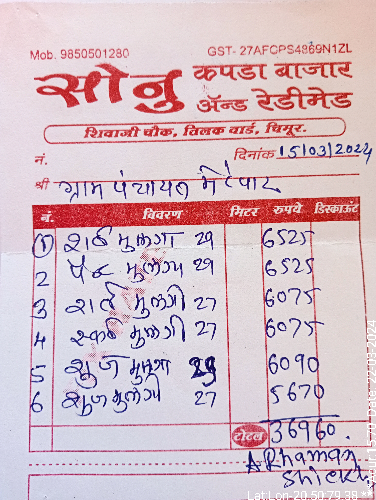 Mob. 9850501280 GST- 27AFCPS4869N1ZL
सोनु कपडा बाजार
ॲन्ड रेडीमेड
शिवाजी चौक, तिलक वार्ड, चिमूर.
नं. दिनांक 15/03/2024
श्री ग्राम पंचायत
नं. विवरण मिटर रुपये डिस्काऊंट
1 शर्ट मुलगा 29 6525
2 पॅन्ट मुलगा 29 6525
3 शर्ट मुलगी 27 6075
4 स्कर्ट मुलगी 27 6075
5 शुज मुलगा 29 6090
6 शुज मुलगी 27 5670
टोटल 36960
ARhaman
Shiekh
Lat Lon-20.50.79.38